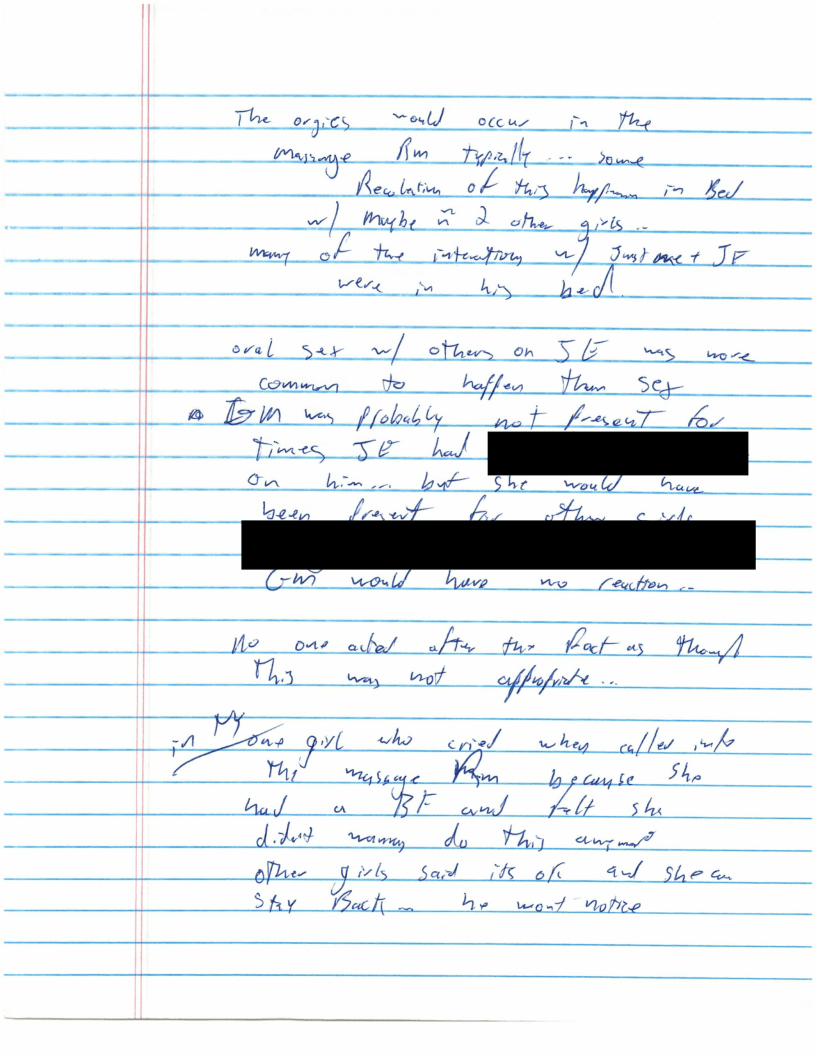 The orgies would occur in the
massage Rm typically ... some
Recolection of this happen in Bed
w/ maybe 2 other girls ..
many of the interactions w/ Just me + JE
were in his bed.
oral sex w/ others on JE was more
common to happen than sex
GM was probably not present for
times JE had
on him... but she would have
been present for other girls
GM would have no reaction ..
No one acted after the fact as though
This was not appropriate ...
in NY one girl who cried when called into
the massage Rm because she
had a BF and felt she
didnt do this anymore
other girls said its ok and she can
stay Back .. he wont notice